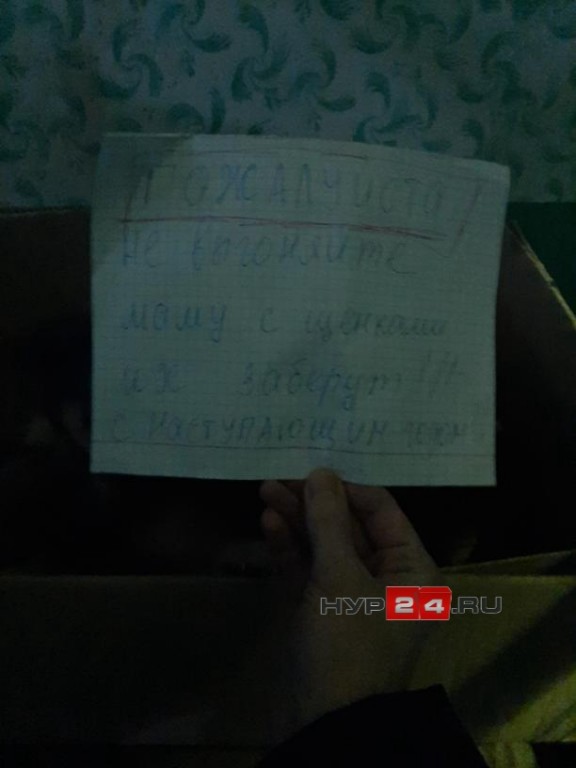 ПОЖАЛУЙСТА
не выгоняйте
маму с щенками
их заберут !!!
С НАСТУПАЮЩИМ годом
НУР24.RU